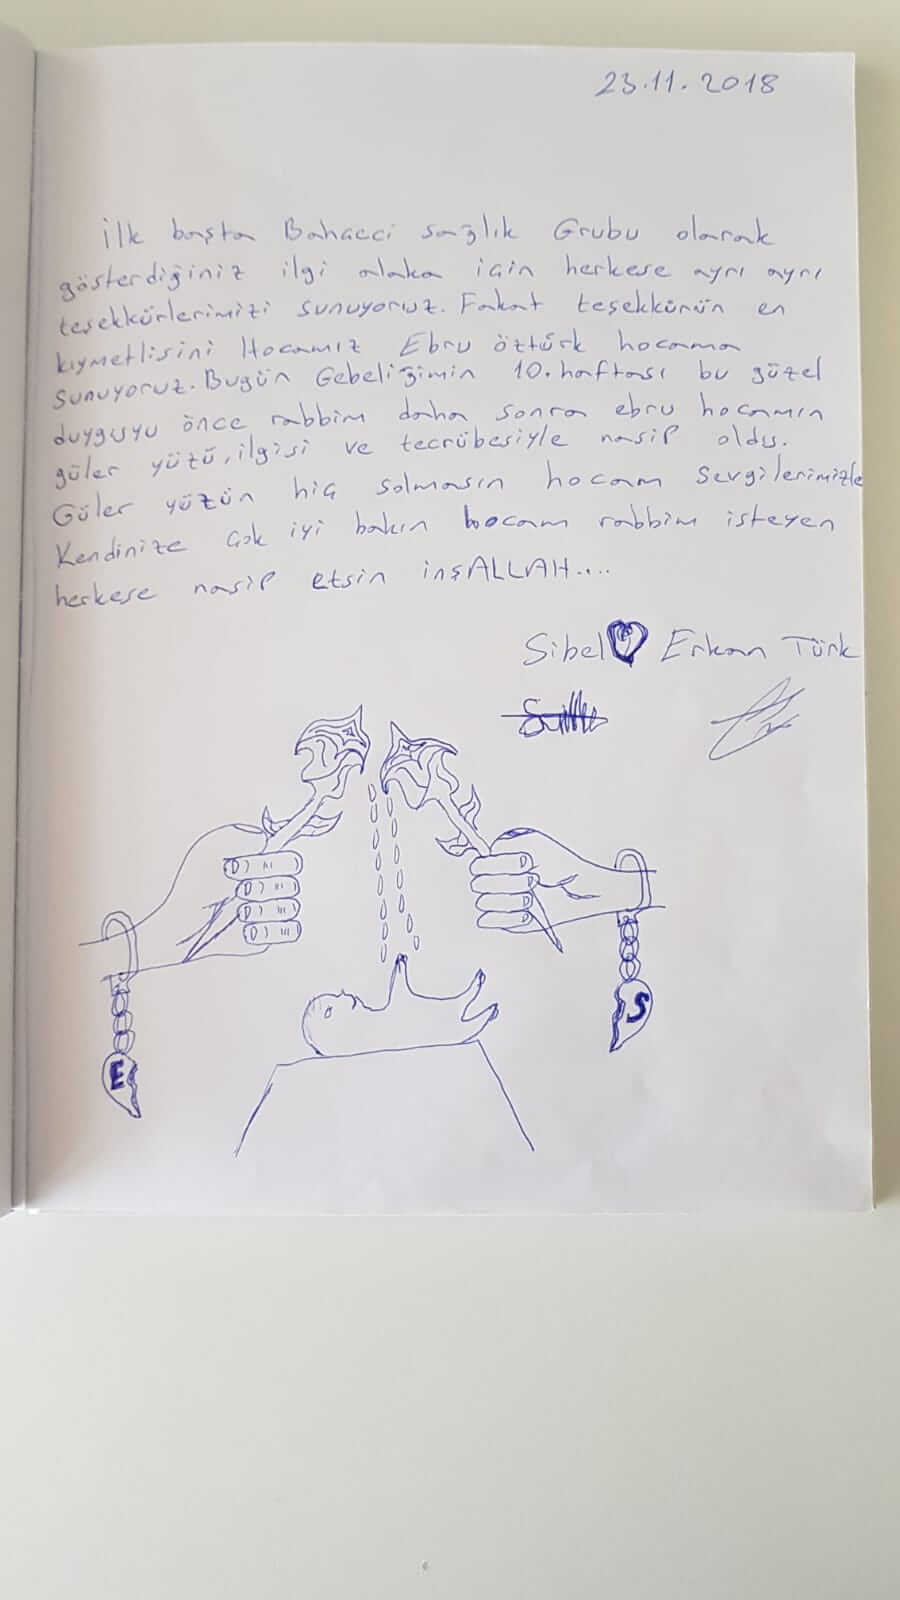 23.11.2018
İlk başta Bahaeci sağlık Grubu olarak
gösterdiğiniz ilgi alaka için herkese ayrı ayrı
teşekkürlerimizi sunuyoruz. Fakat teşekkürün en
kıymetlisini Hocamız Ebru öztürk hocama
sunuyoruz. Bugün Gebeliğimin 10. haftası bu güzel
duyguyu önce rabbim daha sonra ebru hocamın
güler yüzü, ilgisi ve tecrübesiyle nasip oldu.
Güler yüzün hiç solmasın hocam sevgilerimizle
Kendinize çok iyi bakın hocam rabbim isteyen
herkese nasip etsin inşALLAH....
Sibel Erkan Türk
E
S